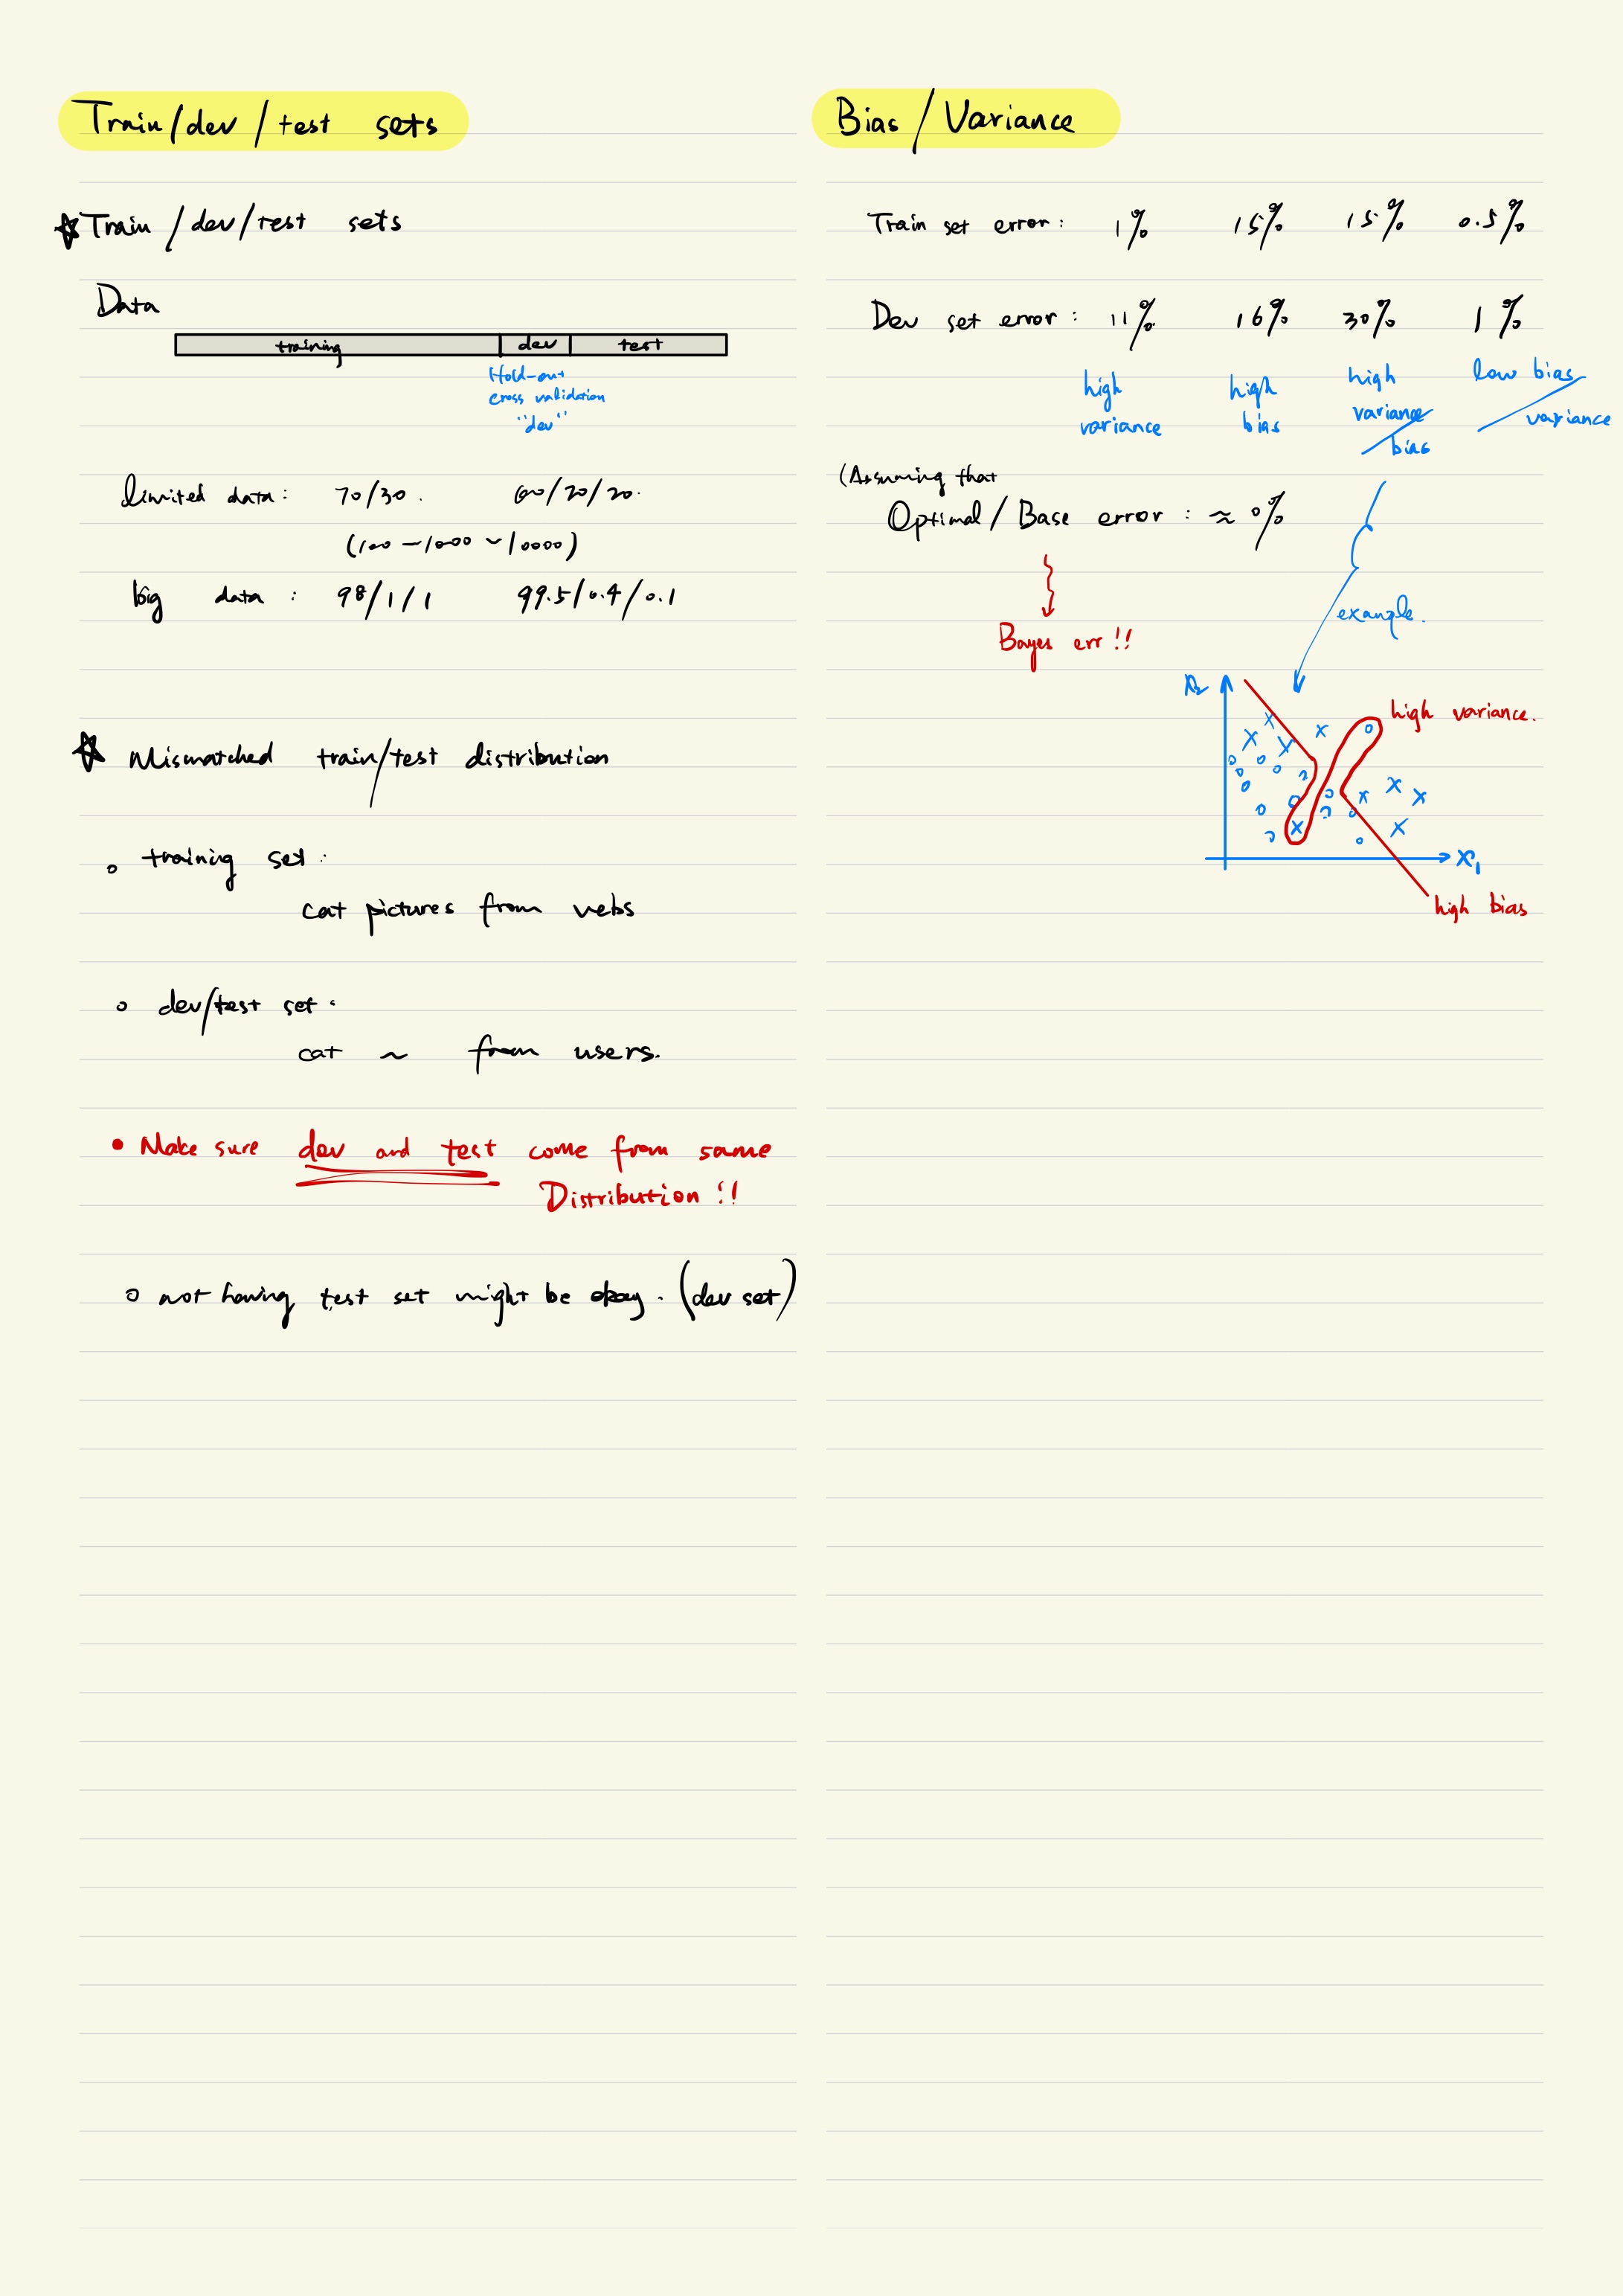 Train/dev/test sets
Train/dev/test sets
Data
training dev test
Hold-out
cross validation
"dev"
limited data: 70/30. 60/20/20.
(100 ~ 1000 ~ 10000)
big data: 98/1/1 99.5/0.4/0.1
Mismatched train/test distribution
training set:
cat pictures from webs
dev/test set:
cat ~ from users.
Make sure dev and test come from same
Distribution!!
not having test set might be okay. (dev set)
Bias/Variance
Train set error: 1% 15% 15% 0.5%
Dev set error: 11% 16% 30% 1%
high variance
high bias
high variance/bias
low bias/variance
(Assuming that
Optimal/Base error: ≈ 0%
Bayes err!!
example.
x2
high variance.
x1
high bias